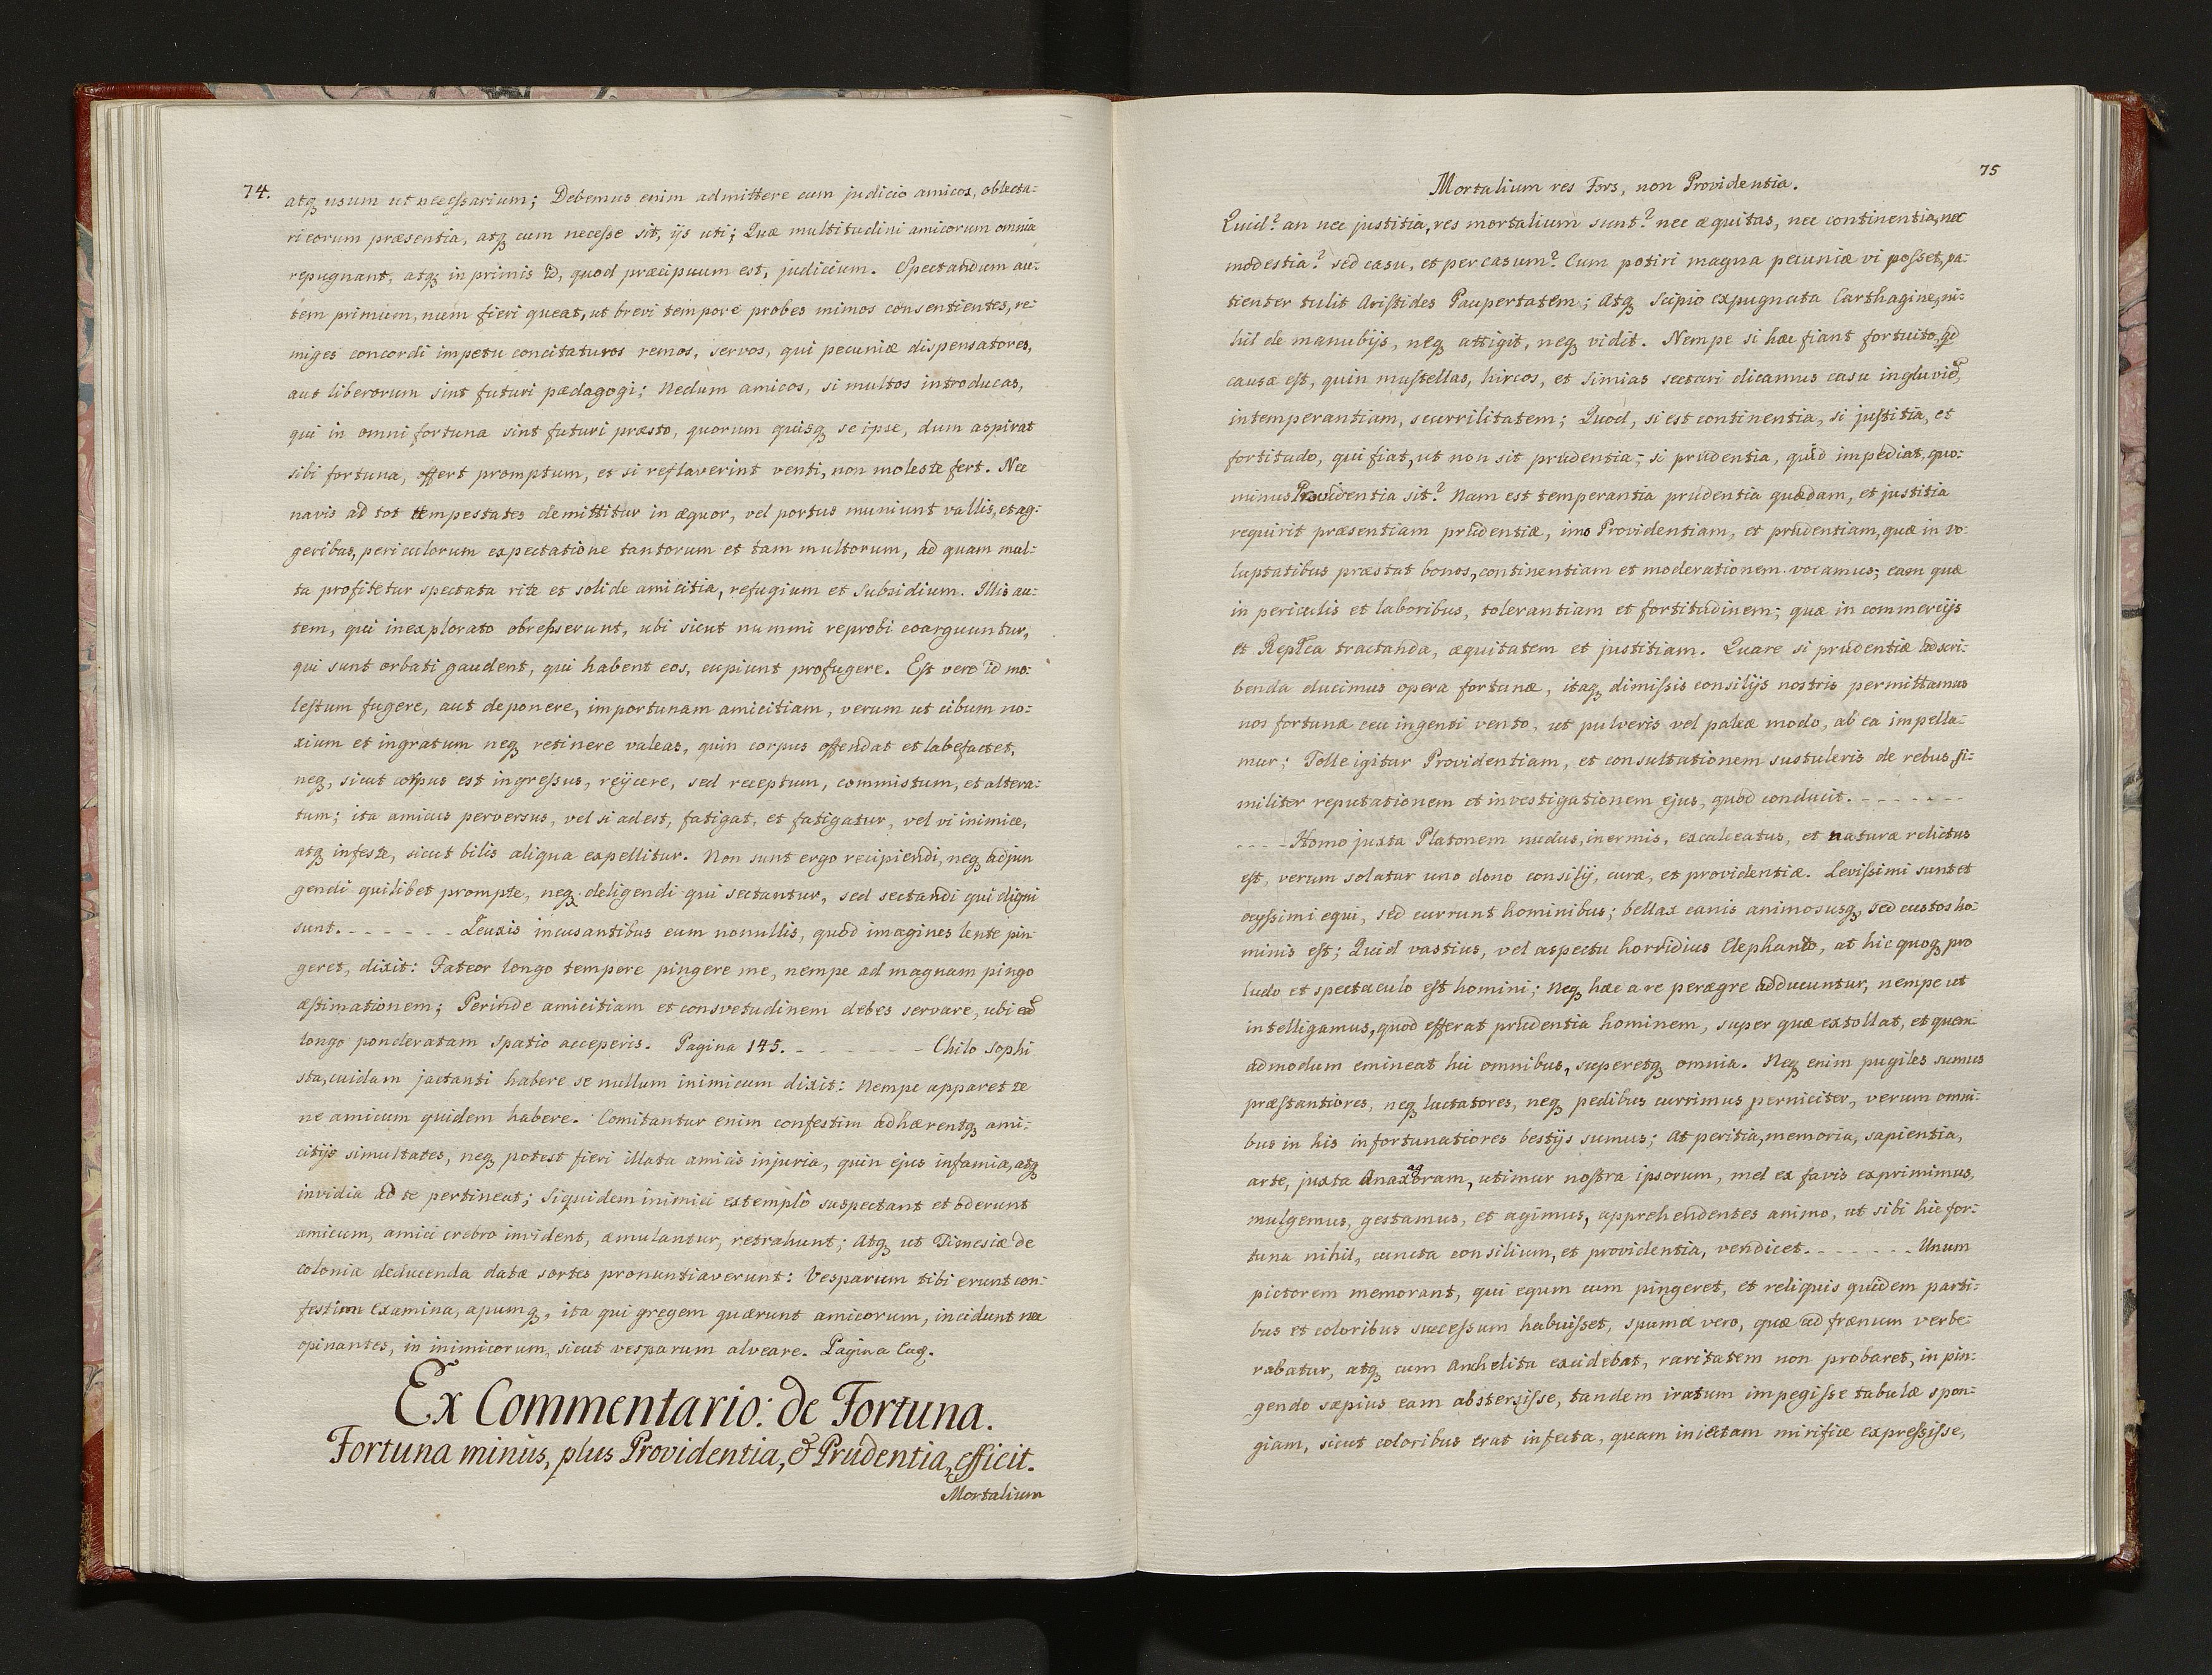 74.
atq usum ut necessarium; Debemus enim admittere cum judicio amicos, oblecta:
ri eorum præsentia, atq cum necesse sit, ijs uti; Quæ multitudini amicorum omnia
repugnant, atq in primis id, quod præcipuum est, judicium. Spectandum au:
tem primum, num fieri queat, ut brevi tempore probes mimos consentientes, re:
miges concordi impetu concitaturos remos, servos, qui pecuniæ dispensatores,
aut liberorum sint futuri pædagogi; Nedum amicos, si multos introducas,
qui in omni fortuna sint futuri præsto, quorum quisq se ipse, dum aspirat
sibi fortuna, offert promptum, et si reflaverint venti, non moleste fert. Nec
navis ad tot tempestates demittitur in æquor, vel portus muniunt vallis, et ag:
geribus, periculorum expectatione tantorum et tam multorum, ad quam mul:
ta profitetur spectata rite et solide amicitia, refugium et subsidium. Illis au:
tem, qui inexplorato obrepserunt, ubi sicut nummi reprobi coarguuntur,
qui sunt orbati gaudent, qui habent eos, cupiunt profugere. Est vero id mo:
lestum fugere, aut deponere, importunam amicitiam, verum ut cibum no:
xium et ingratum neq retinere valeas, quin corpus offendat et labefactet,
neq, sicut corpus est ingressus, reÿcere, sed receptum, commistum, et altera:
tum; ita amicus perversus, vel si adest, fatigat, et fatigatur, vel vi inimice,
atq infeste, sicut bilis aliqua expellitur. Non sunt ergo recipiendi, neq adjun
gendi quilibet prompte, neq deligendi qui sectantur, sed sectandi qui digni
sunt. - - - - - - - Zeuxis incusantibus eum nonullis, quod imagines lente pin
geret, dixit: Fateor longo tempore pingere me, nempe ad magnam pingo
æstimationem; Perinde amicitiam et consvetudinem debes servare, ubi eã
longo ponderatam spatio acceperis. Pagina 145. - - - - - - - Chilo sophi
sta, cuidam jactanti habere se nullum inimicum dixit: Nempe apparet te
ne amicum quidem habere. Comitantur enim confestim adhærentq ami:
citijs simultates, neq potest fieri illata amicis injuria, quin ejus infamia, atq
invidia ad te pertineat; Siquidem inimici extemplo suspectant et oderunt
amicum, amici crebro invident, æmulantur, retrahunt; Atq ut Timesiæ de
colonia deducenda datæ sortes pronuntiaverunt: Vesparum tibi erunt con:
festim examina, apumq, ita qui gregem quærunt amicorum, incidunt nec
opinantes, in inimicorum, sicut vesparum alveare. Pagina Eaq.
Ex Commentario: de Fortuna.
Fortuna minus, plus Providentia, & Prudentia, efficit.
Mortalium
75
Mortalium res Fors, non Providentia.
Quid? an nec justitia, res mortalium sunt? nec æquitas, nec continentia, nec
modestia? sed casu, et per casum? Cum potiri magna pecuniæ vi posset, pa:
tienter tulit Aristides Paupertatem; Atq Scipio expugnata Carthagine, ni:
hil de manubijs, neq attigit, neq vidit. Nempe si hæc fiant fortuito, qd
causæ est, quin mustellas, hircos, et simias sectari dicamus casu ingluviẽ,
intemperantiam, scurrilitatem; Quod, si est continentia, si justitia, et
fortitudo, qui fiat, ut non sit prudentia; si prudentia, quid impediat, quo:
minus Providentia sit? Nam est temperantia prudentia quædam, et justitia
requirit præsentiam prudentiæ, imo Providentiam, et prudentiam, quæ in vo:
luptatibus præstat bonos, continentiam et moderationem vocamus; eam quæ
in periculis et laboribus, tolerantiam et fortitudinem; quæ in commercijs
et Repĩca tractanda, æquitatem et justitiam. Quare si prudentiæ adscri:
benda ducimus opera fortunæ, itaq dimissis consilijs nostris permittamus
nos fortunæ ceu ingenti vento, ut pulveris vel paleæ modo, ab ea impella:
mur; Tolle igitur Providentiam, et consultationem sustuleris de rebus, si:
militer reputationem et investigationem ejus, quod conducit. - - - - - - -
- - - - Homo juxta Platonem nudus, inermis, excalceatus, et naturæ relictus
est, verum solatur uno dono consilij, curæ, et providentiæ. Levissimi sunt et
ocyssimi equi, sed currunt hominibus; bellax canis animosusq, sed custos ho:
minis est; Quid vastius, vel aspectu horridius Elephanto, at hic quoq pro
ludo et spectaculo est homini; Neq hæc a re peræque adducuntur, nempe ut
intelligamus, quod efferat prudentia hominem, super quæ extollat, et quem:
admodum emineat hic omnibus, superetq omnia. Neq enim pugiles sumus
præstantiores, neq luctatores, neq pedibus currimus perniciter, verum omni:
bus in his infortunatiores bestijs sumus; At peritia, memoria, sapientia,
arte, juxta Anaxagoram, utimur nostra ipsorum, mel ex favis exprimimus,
mulgemus, gestamus, et agimus, apprehendentes animo, ut sibi hic for:
tuna nihil, cuncta consilium, et providentia, vendicet. - - - - - - - Unum
pictorem memorant, qui equm cum pingeret, et reliquis quidem parti:
bus et coloribus successum habuisset, spumæ vero, quæ ad frænum verbe:
rabatur, atq cum Anhelitu excidebat, raritatem non probaret, in pin:
gendo sæpius eam abstersisse, tandem iratum impegisse tabulæ spon:
giam, sicut coloribus erat infecta, quam iniectam mirifice expressisse,